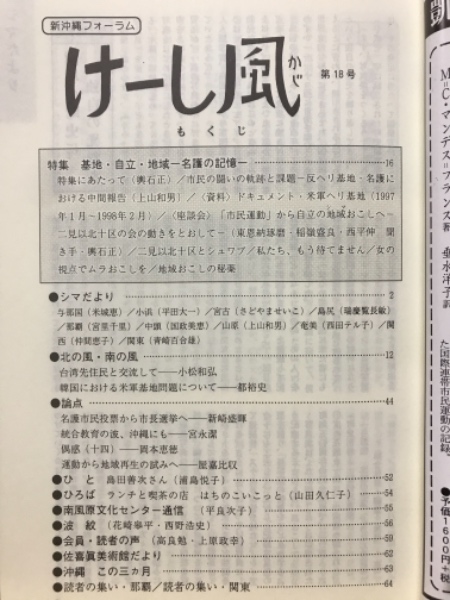 新沖縄フォーラム
けーし風
かじ
第18号
もくじ
特集　基地・自立・地域ー名護の記憶ー ―― 16
特集にあたって（輿石正）／市民の闘いの軌跡と課題－反ヘリ基地・名護に
おける中間報告（上山和男）／〈資料〉ドキュメント・米軍ヘリ基地（1997
年1月～1998年2月）／〈座談会〉「市民運動」から自立の地域おこしへ－
二見以北十区の会の動きをとおして－（東恩納琢磨・稲嶺盛良・西平伸　聞
き手・輿石正）／二見以北十区とシュワブ／私たち、もう待てません／女の
視点でムラおこしを／地域おこしの秘薬
●シマだより ―― 2
与那国（米城恵）／小浜（平田大一）／宮古（さどやませいこ）／島尻（瑞慶覧長敏）
／那覇（宮里千里）／中頭（国政美恵）／山原（上山和男）／奄美（西田テル子）／関
西（仲間恵子）／関東（青崎百合雄）
●北の風・南の風 ―― 12
台湾先住民と交流して――小松和弘
韓国における米軍基地問題について――都裕史
●論点 ―― 44
名護市民投票から市長選挙へ――新崎盛暉
統合教育の波、沖縄にも――宮永潔
偶感（十四）――岡本恵徳
運動から地域再生の試みへ――屋嘉比収
●ひと　島田善次さん（浦島悦子） ―― 52
●ひろば　ランチと喫茶の店　はちのこいこっと（山田久仁子） ―― 54
●南風原文化センター通信（平良次子） ―― 55
●波紋（花崎皋平・西野浩史） ―― 56
●会員・読者の声（高良勉・上原政幸） ―― 59
●佐喜眞美術館だより ―― 62
●沖縄　この三ヵ月 ―― 63
●読者の集い・那覇／読者の集い・関東 ―― 64
M=C・マンデス=フランス著
垂水洋子訳
た国際連帯市民運動の記録。
●予価1600円+税